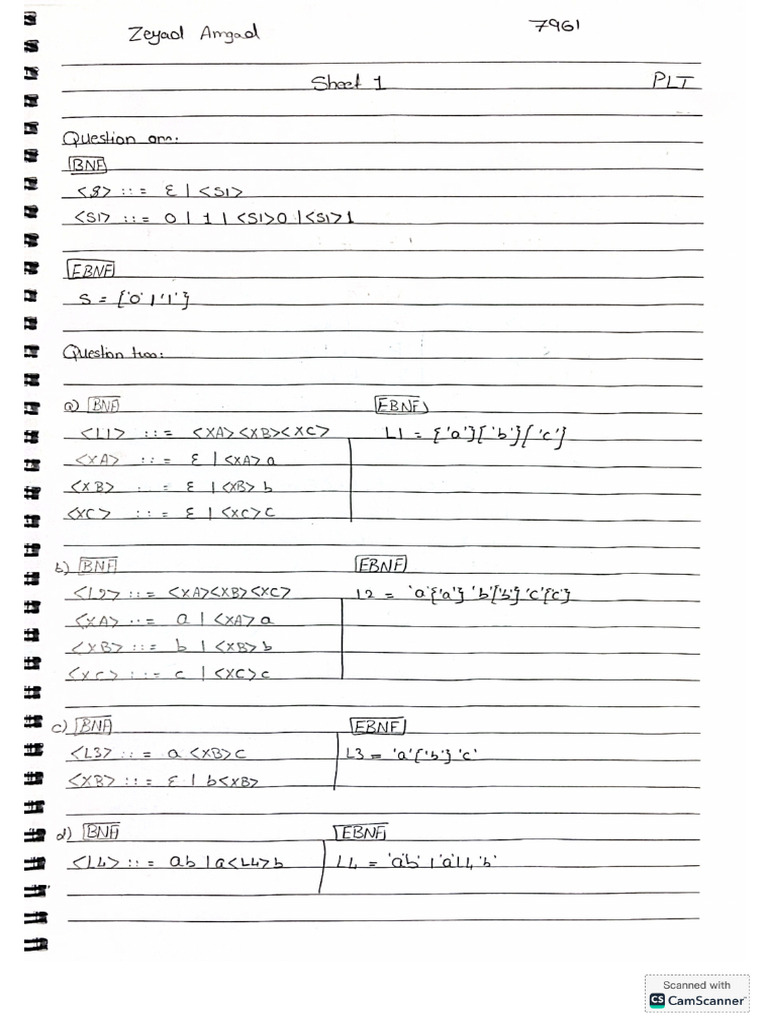 Zeyad Amgad 7961
Sheet 1 PLT
Question one:
BNF
<S> ::= ε | <S1>
<S1> ::= 0 | 1 | <S1>0 | <S1>1
EBNF
S = {'0' | '1'}
Question two:
a) BNF EBNF
<L1> ::= <XA><XB><XC> L1 = {'a'}{'b'}{'c'}
<XA> ::= ε | <XA>a
<XB> ::= ε | <XB>b
<XC> ::= ε | <XC>c
b) BNF EBNF
<L2> ::= <XA><XB><XC> L2 = 'a'{'a'} 'b'{'b'} 'c'{'c'}
<XA> ::= a | <XA>a
<XB> ::= b | <XB>b
<XC> ::= c | <XC>c
c) BNF EBNF
<L3> ::= a <XB>c L3 = 'a'{'b'}'c'
<XB> ::= ε | b<XB>
d) BNF EBNF
<L4> ::= ab | a<L4>b L4 = 'a''b' | 'a'L4'b'
Scanned with
CS CamScanner